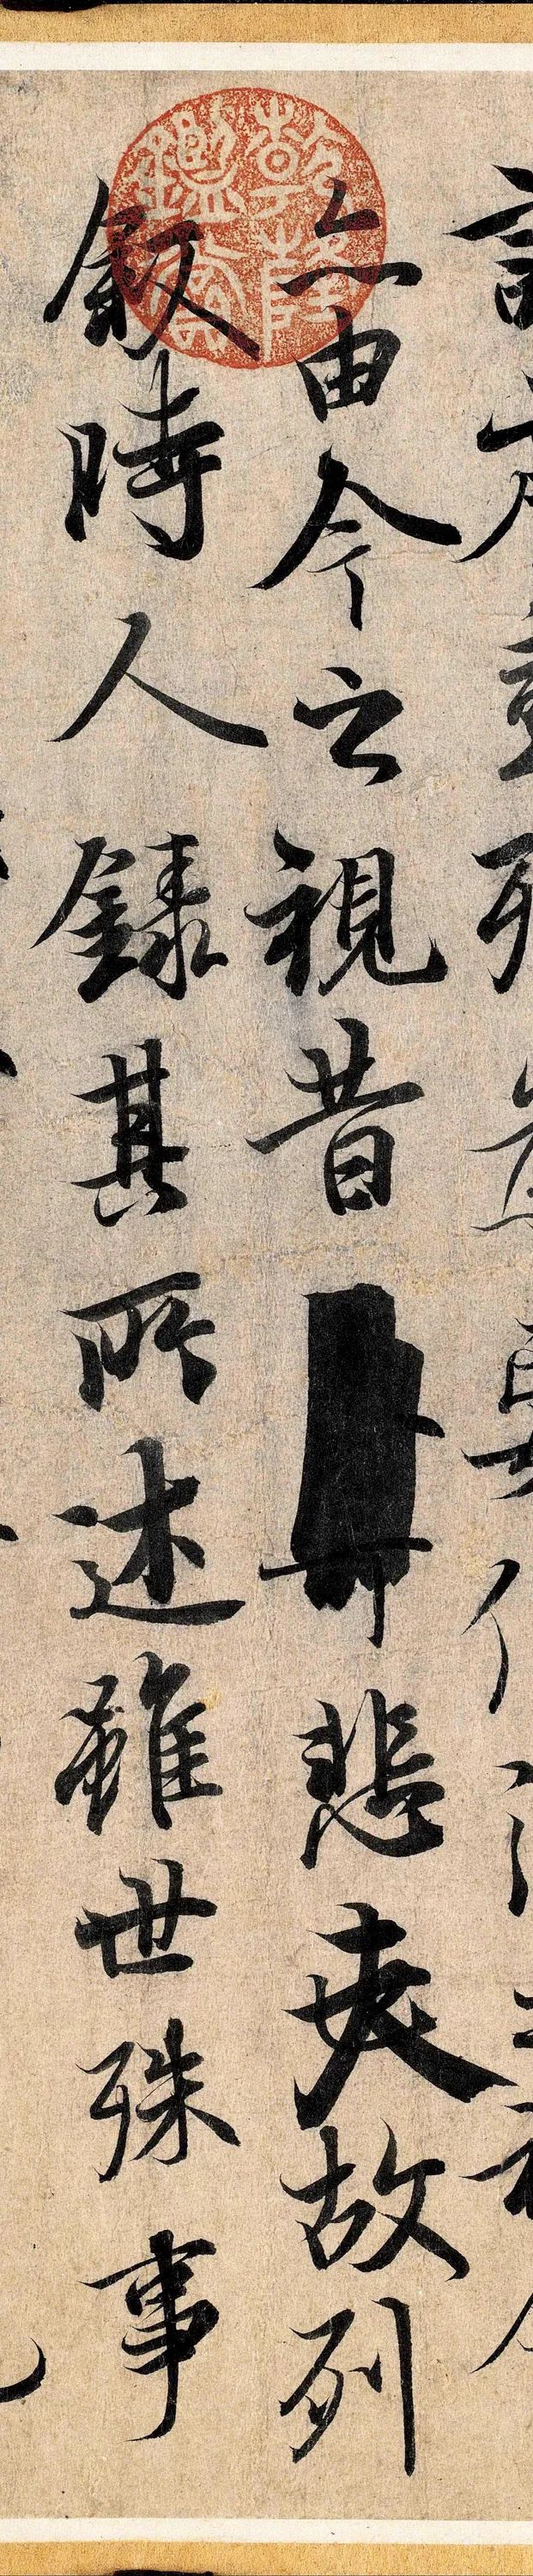 亦由今之視昔悲夫故列
敘時人錄其所述雖世殊事
乾隆鑑賞